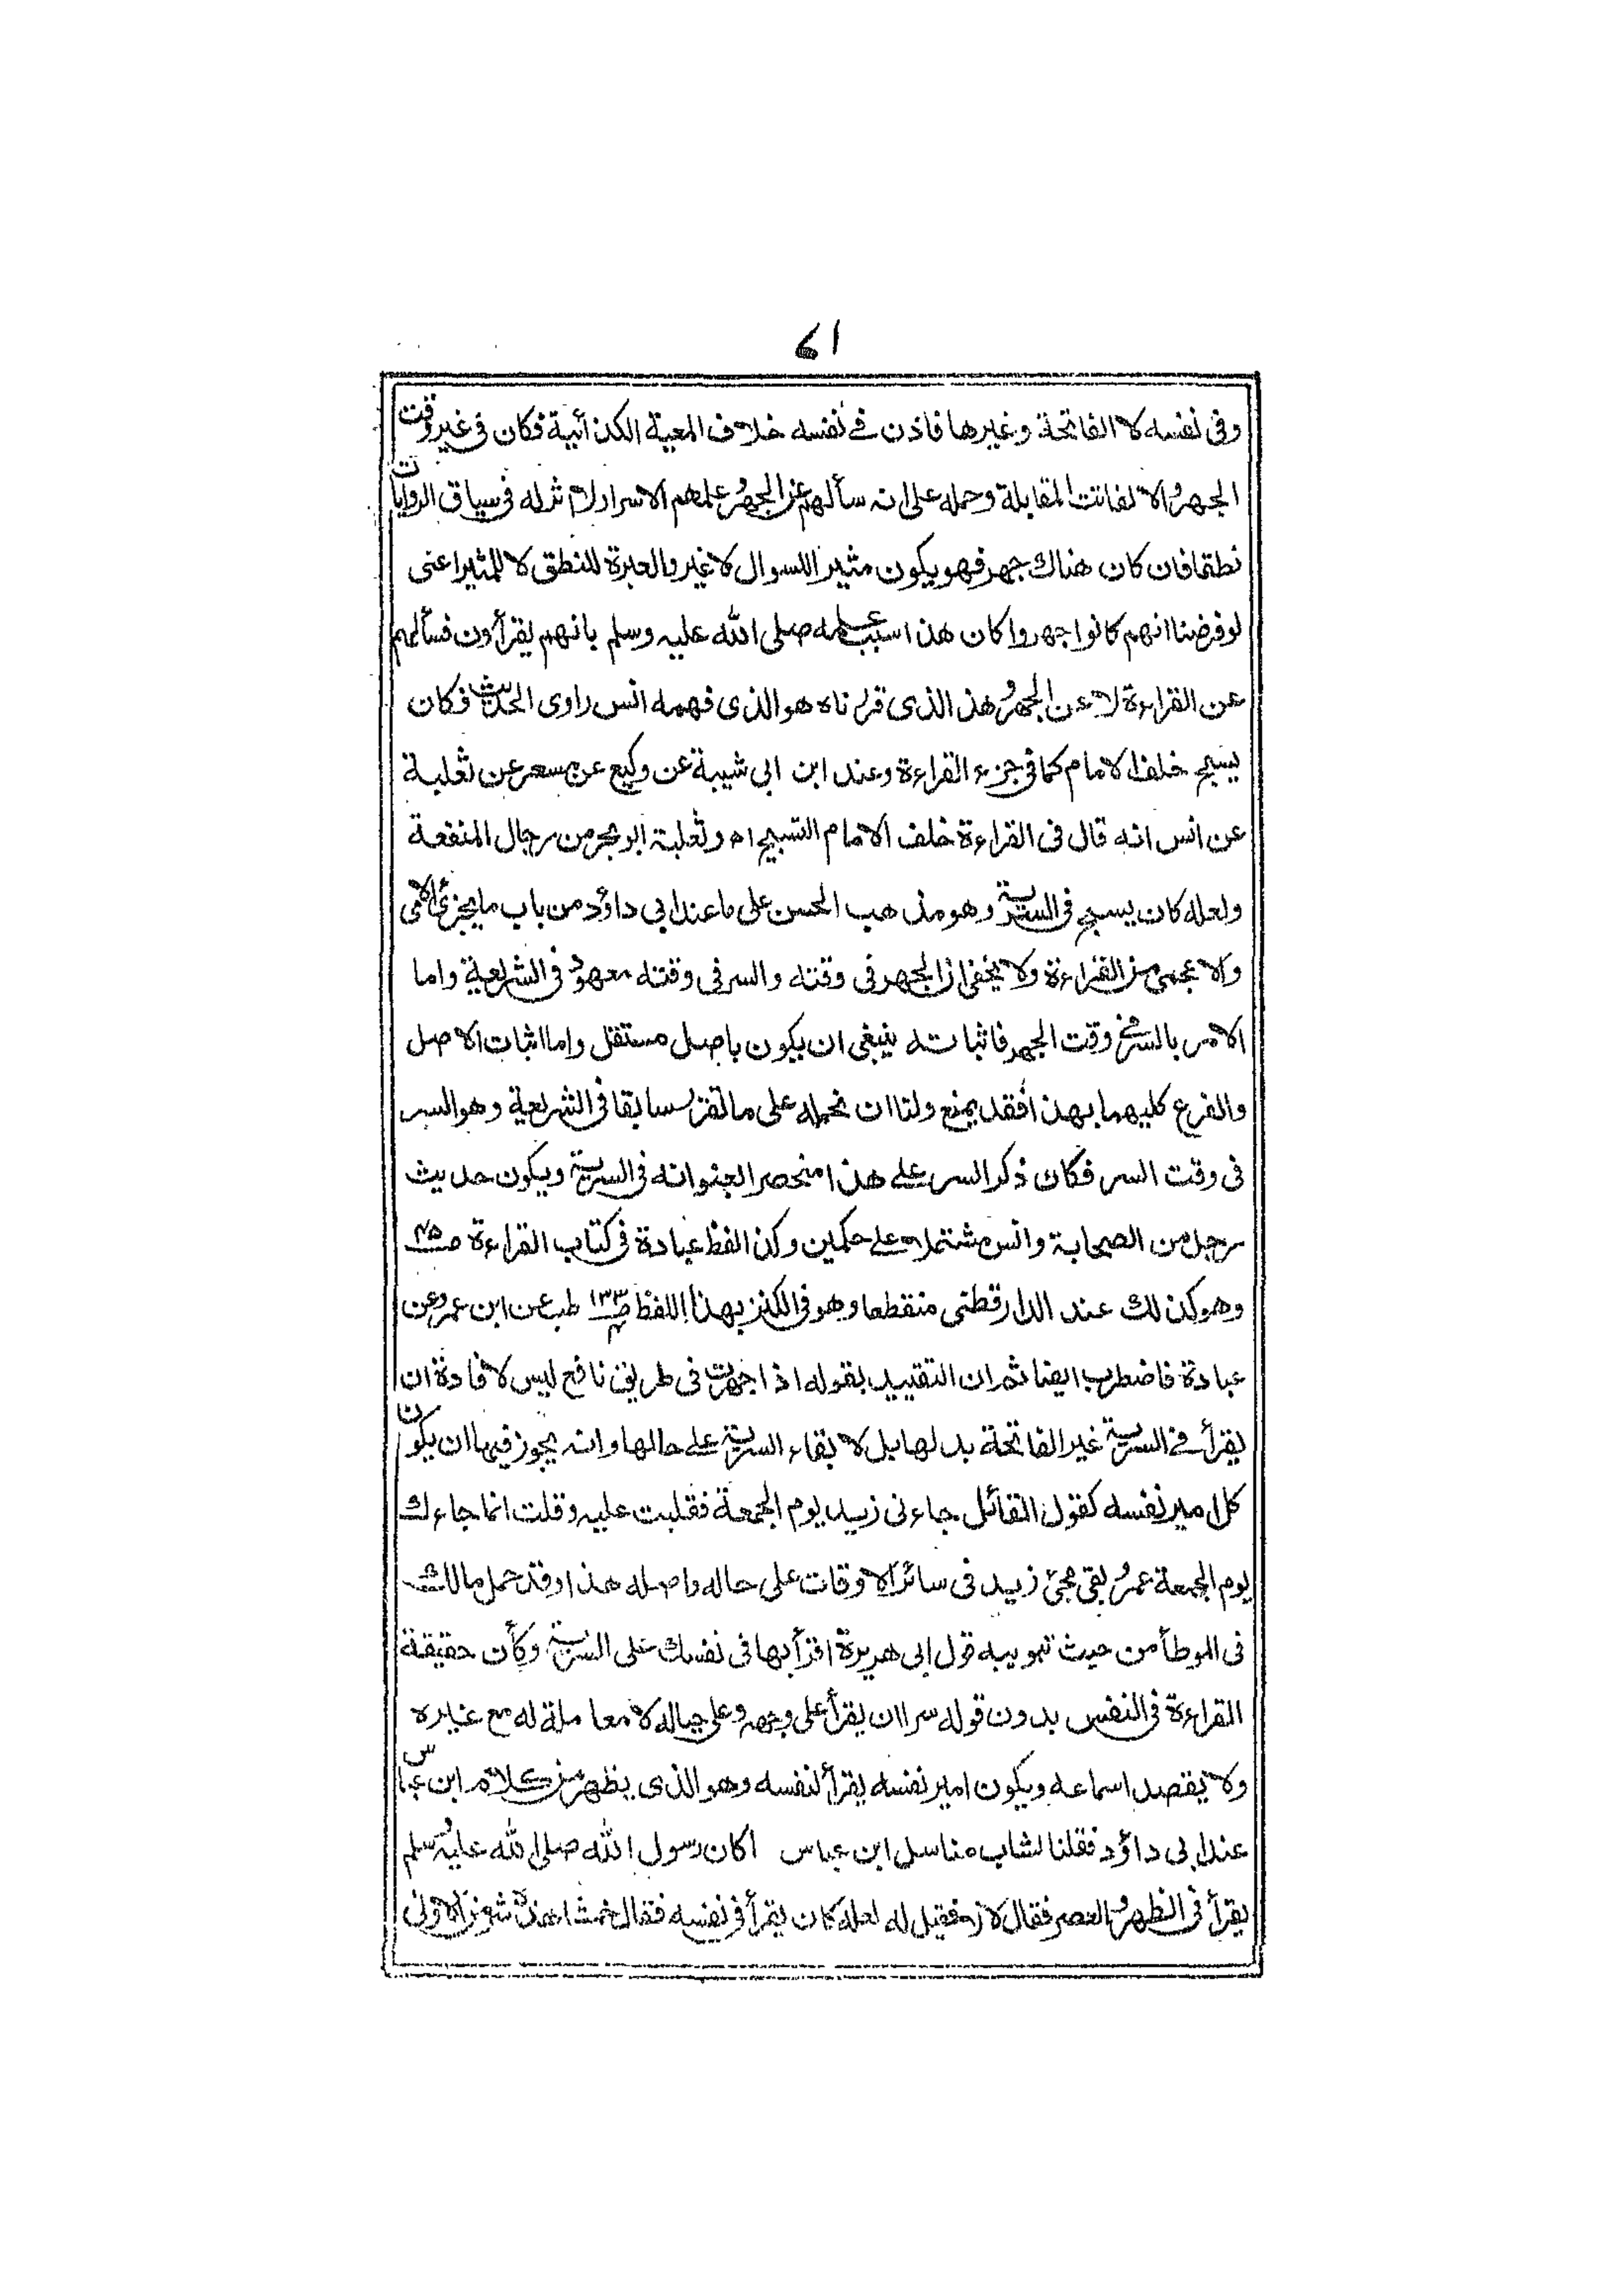 61
وفى نفسه لا الفاتحة وغيرها فاذن فى نفسه خلاف المعية الكذائية فكان فى غير وقت
الجهر والا لفاتت المقابلة وحمله على انه سألهم عن الجهر وعلمهم الاسرار لا اثر له فى سياق الروايات
نطقها فان كان هناك جهر فهو يكون مثير اللسوال لا غير والعبرة للنطق لا للمثير اعنى
لو فرضنا انهم كانوا جهروا كان هذا سبب علمه صلى الله عليه وسلم بانهم يقرأون فسألهم
عن القراءة لا عن الجهر وهذا الذى قررناه هو الذى فهمه انس راوى الحديث فكان
يسبح خلف الامام كما فى جزء القراءة وعند ابن ابى شيبة عن وكيع عن مسعر عن ثعلبة
عن انس انه قال فى القراءة خلف الامام التسبيح اه وثعلبة ابو بحر من رجال المنفعة
ولعله كان يسبح فى السرية وهو مذهب الحسن على ما عند ابى داؤد من باب ما يجزئ الامى
والاعجمى من القراءة ولا يخفى ان الجهر فى وقته والسر فى وقته معهود فى الشريعة واما
الامر بالسر فى وقت الجهر فاثباته ينبغى ان يكون باصل مستقل واما اثبات الاصل
والفرع كليهما بهذا فقد يمنع ولنا ان نحمله على ما تقرر سابقا فى الشريعة وهو السر
فى وقت السر فكان ذكر السر على هذا منحصر العنوانه فى السرية ويكون حديث
رجل من الصحابة وانس مشتملا على حكمين وكذا لفظ عبادة فى كتاب القراءة ص ٤٥
وهو كذلك عند الدارقطنى منقطعا وهو فى الكنز بهذا اللفظ ص ١٣٣ طب عن ابن عمر وعن
عبادة فاضطرب ايضا ثم ان التقييد بقوله اذا جهرت فى طريق نافع ليس لافادة ان
يقرأ فى السرية غير الفاتحة بدلها بل لابقاء السرية على حالها وانه يجوز فيها ان يكون
كل امير نفسه كقول القائل جاءنى زيد يوم الجمعة فقلبت عليه وقلت انما جاءك
يوم الجمعة عمر وبقى مجئ زيد فى سائر الاوقات على حاله واصله هذا وقد حمل مالك
فى الموطأ من حيث تبويبه قول ابى هريرة اقرأ بها فى نفسك على السرية وكأن حقيقة
القراءة فى النفس بدون قوله سرا ان يقرأ على وجهه وعلى حياله لا معاملة له مع غيره
ولا يقصد اسماعه ويكون امير نفسه يقرأ لنفسه وهو الذى يظهر من كلام ابن عباس
عند ابى داؤد فقلنا لشاب منا سل ابن عباس اكان رسول الله صلى الله عليه وسلم
يقرأ فى الظهر والعصر فقال لا لا فقيل له لعله كان يقرأ فى نفسه فقال خمشا هذه شر من الاولى